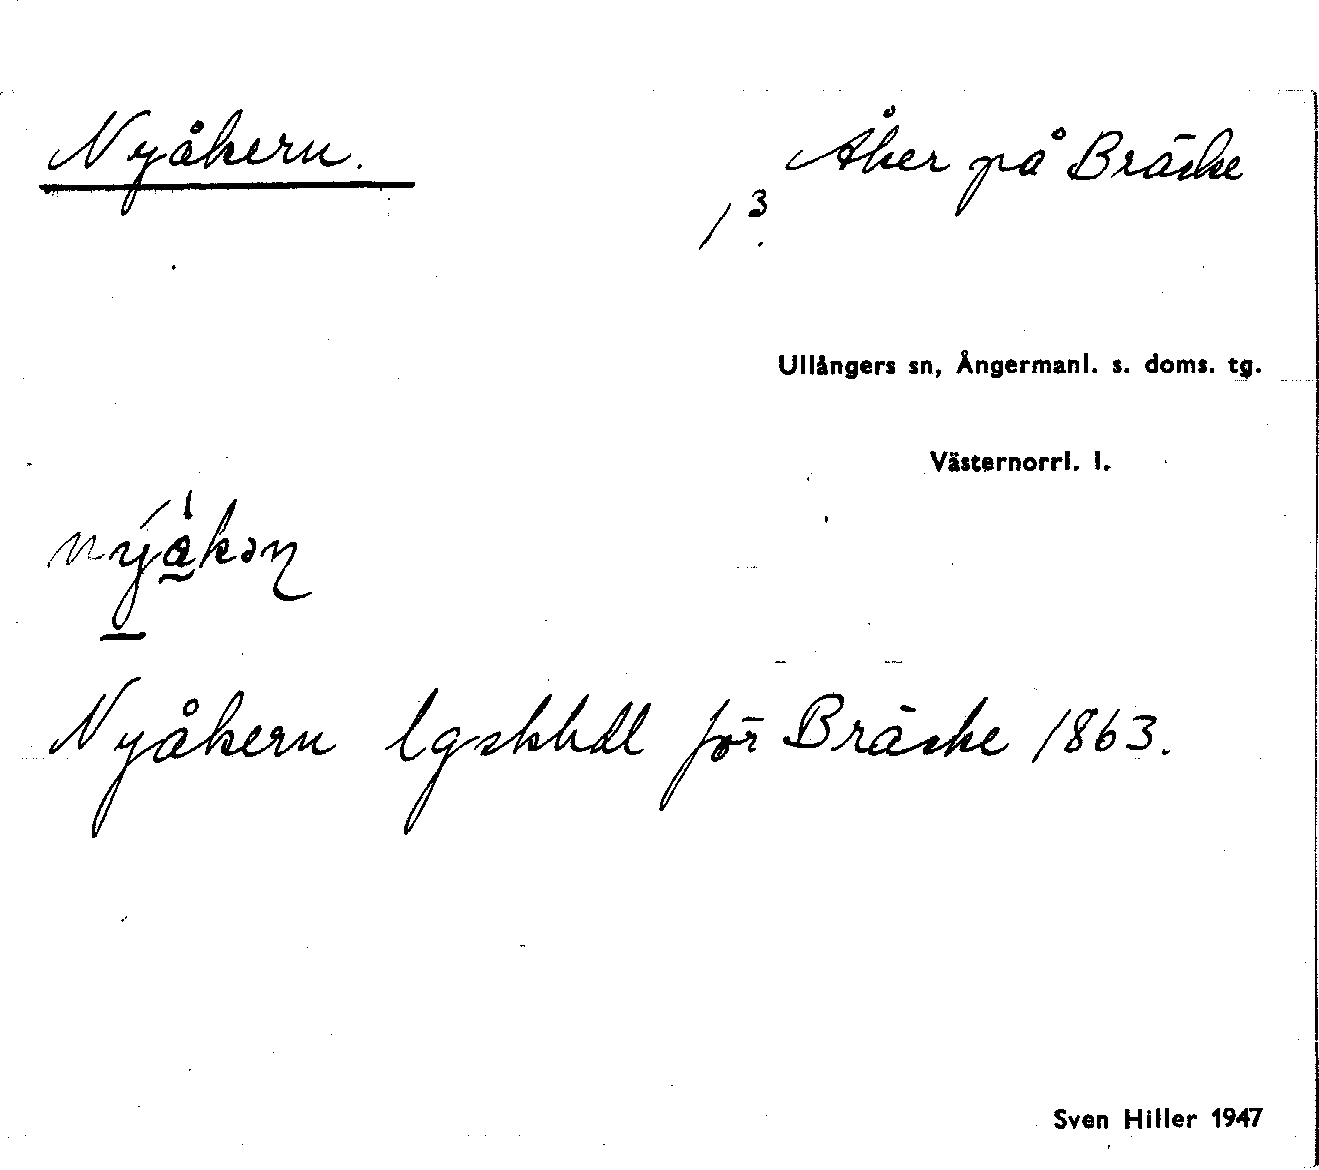 Nyåkern.
Åker på Bräcke
/ 3.
Ullångers sn, Ångermanl. s. doms. tg.
Västernorrl. l.
Nyåkern lgskhdl för Bräcke 1863.
Sven Hiller 1947